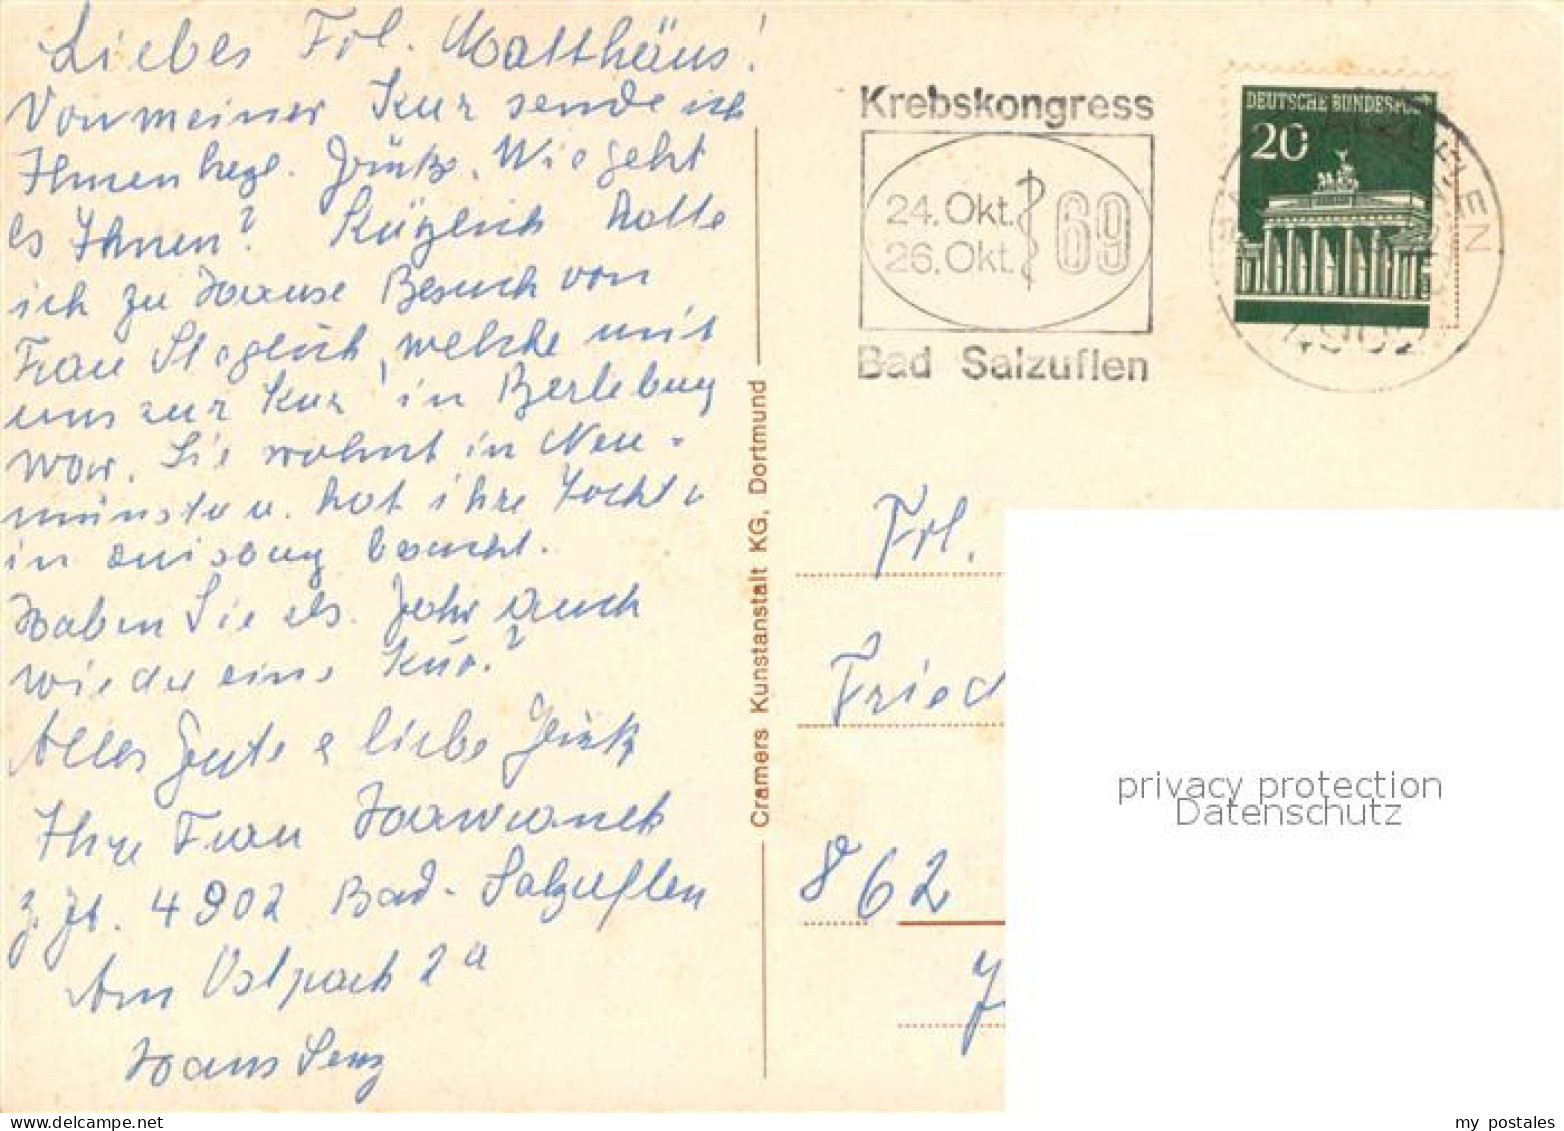 Liebes Frl. Matthäus!
Von meiner Kur sende ich
Ihnen herzl. Grüße. Wie geht
es Ihnen? Kürzlich hatte
ich zu Hause Besuch von
Frau welche mit
uns zur Kur in Berleburg
war. Sie wohnt in Neu-
münster u. hat ihre Tochter
in besucht.
Haben Sie ds. Jahr auch
wieder eine Kur?
Alles Gute u. liebe Grüße
Ihre Frau Hawranek
z. Zt. 4902 Bad-Salzuflen
Am Ostpark 2a
Haus Lenz
Cramers Kunstanstalt KG, Dortmund
Krebskongress
24. Okt.
26. Okt. 69
Bad Salzuflen
DEUTSCHE BUNDESPOST
20
4902
Frl.
Fried
862
privacy protection
Datenschutz
my postales